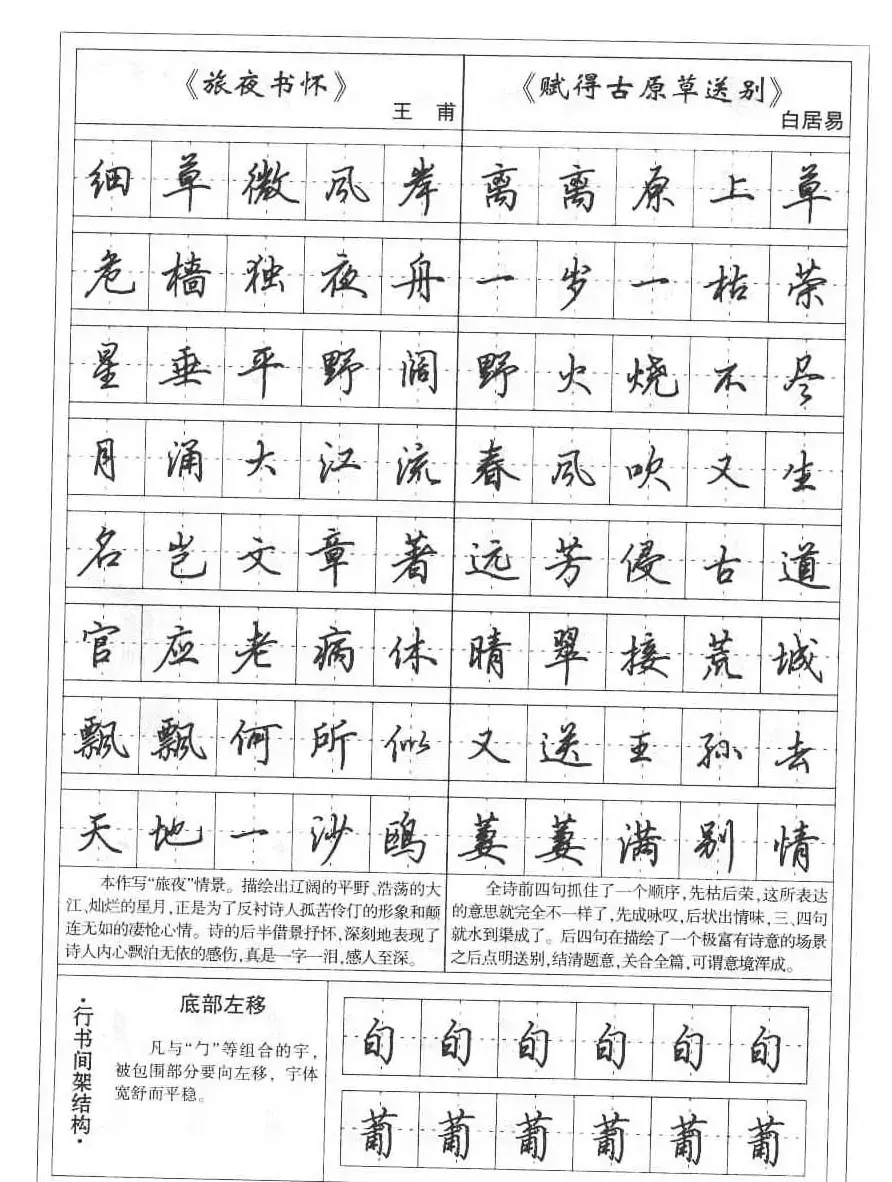 《旅夜书怀》
王 甫
细草微风岸
危樯独夜舟
星垂平野阔
月涌大江流
名岂文章著
官应老病休
飘飘何所似
天地一沙鸥
本作写“旅夜”情景。描绘出辽阔的平野、浩荡的大
江、灿烂的星月,正是为了反衬诗人孤苦伶仃的形象和颠
连无如的凄怆心情。诗的后半借景抒怀,深刻地表现了
诗人内心飘泊无依的感伤,真是一字一泪,感人至深。
《赋得古原草送别》
白居易
离离原上草
一岁一枯荣
野火烧不尽
春风吹又生
远芳侵古道
晴翠接荒城
又送王孙去
萋萋满别情
全诗前四句抓住了一个顺序,先枯后荣,这所表达
的意思就完全不一样了,先成咏叹,后状出情味,三、四句
就水到渠成了。后四句在描绘了一个极富有诗意的场景
之后点明送别,结清题意,关合全篇,可谓意境浑成。
·行书间架结构·
底部左移
凡与“勹”等组合的字,
被包围部分要向左移,字体
宽舒而平稳。
旬旬旬旬旬旬
葡葡葡葡葡葡